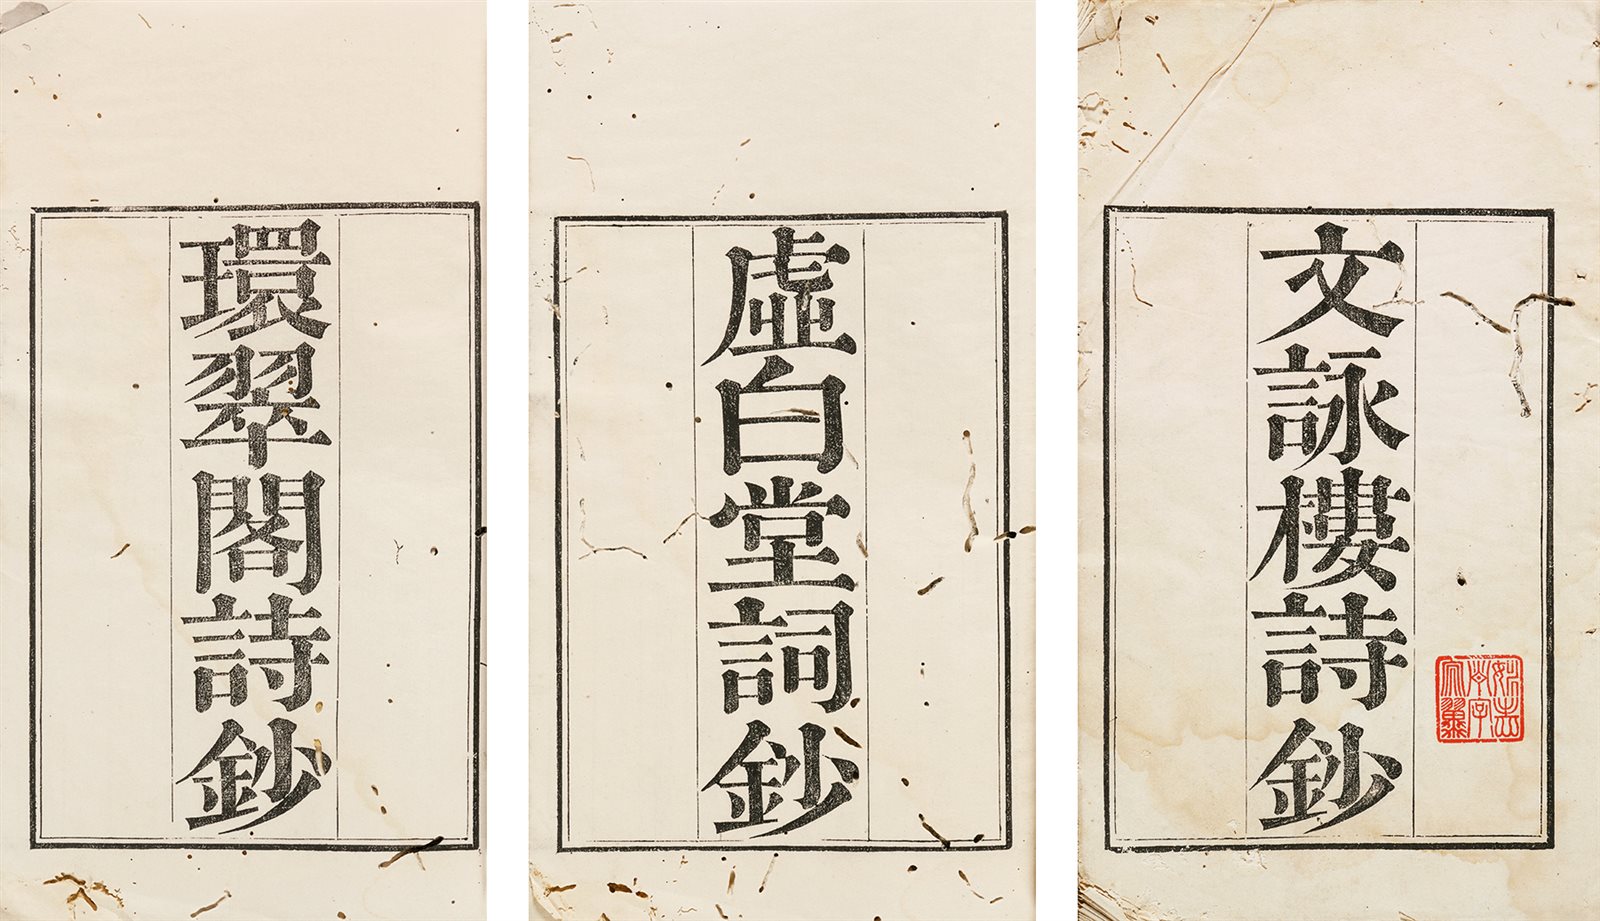 環翠閣詩鈔
虛白堂詞鈔
文詠樓詩鈔